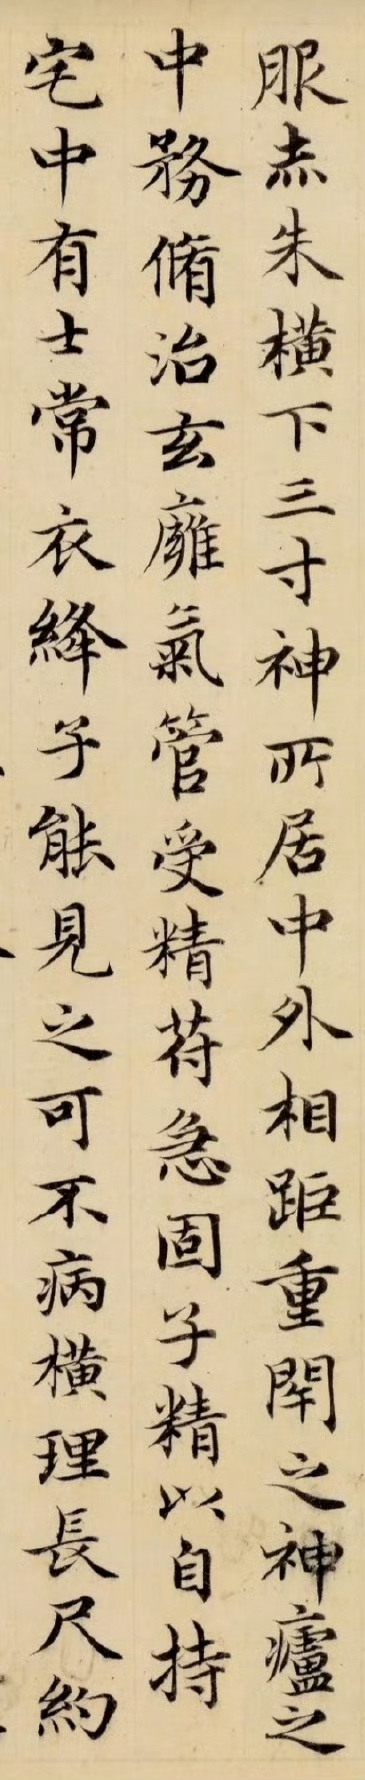 服赤朱橫下三寸神所居中外相距重閇之神廬之
中務脩治玄廱氣管受精苻急固子精以自持
宅中有士常衣絳子能見之可不病橫理長尺約